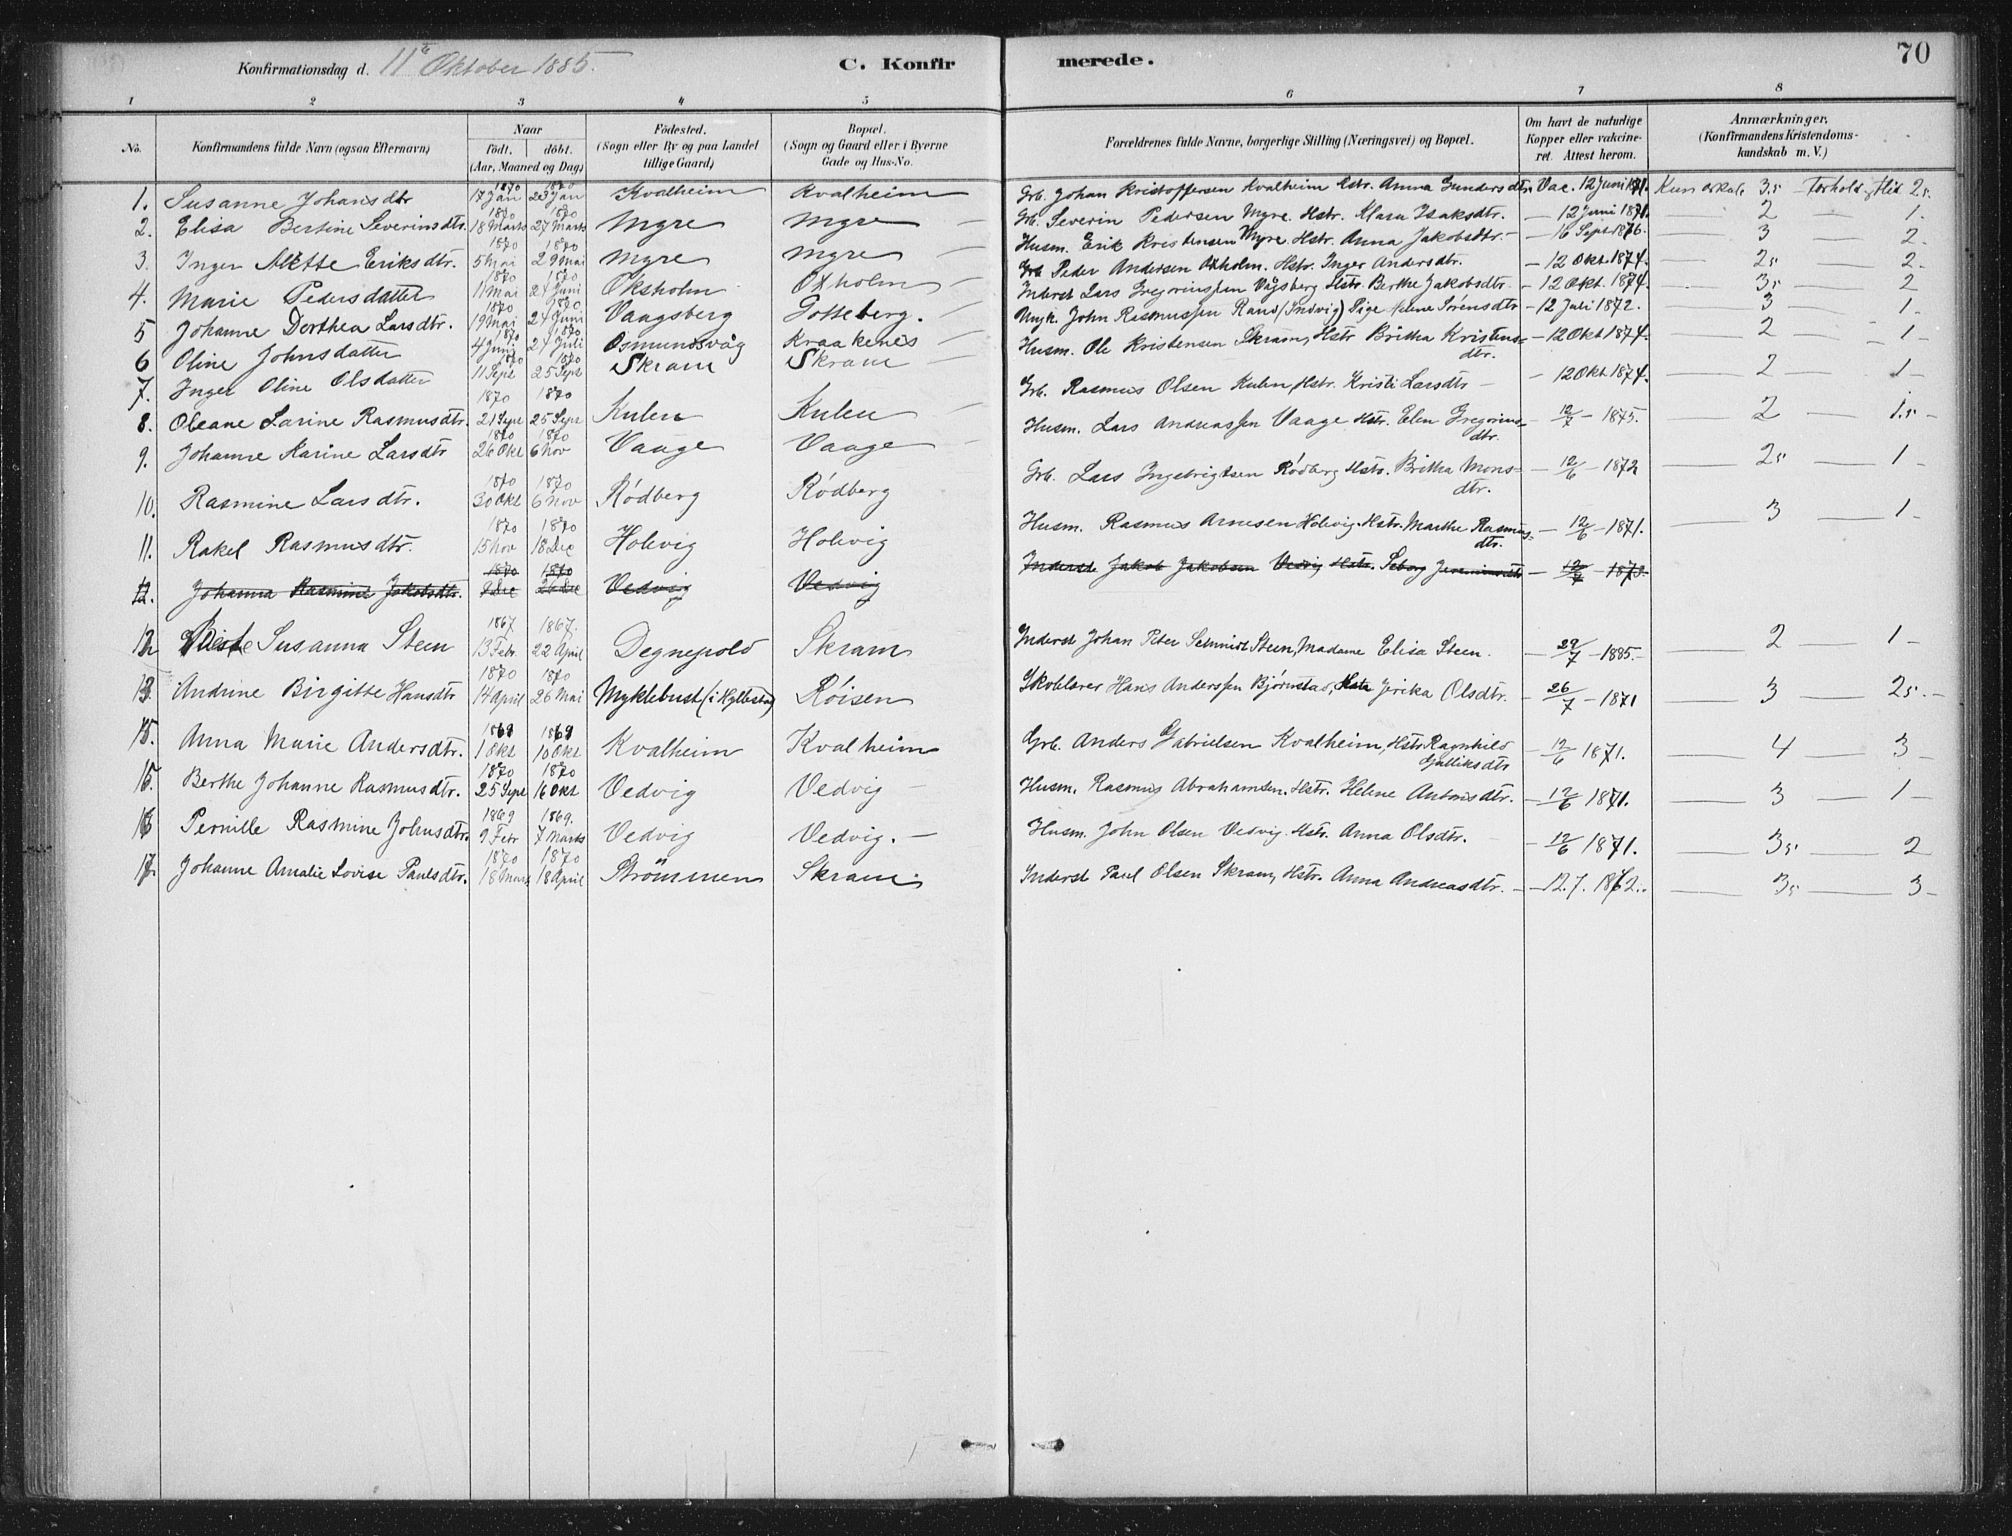 70
Konfirmationsdag d. 11te Oktober 1885.
C. Konfirmerede.
1 2 3 4 5 6 7 8
No.
Konfirmandens fulde Navn (ogsaa Efternavn)
Naar
födt. döbt.
(Aar, Maaned og Dag)
Födested.
(Sogn eller By og paa Landet
tillige Gaard)
Bopæl.
(Sogn og Gaard eller i Byerne
Gade og Hus-No.
Forældrenes fulde Navne, borgerlige Stilling (Næringsvei) og Bopæl.
Om havt de naturlige
Kopper eller vakcine-
ret. Attest herom.
Anmærkninger.
(Konfirmandens Kristendoms-
kundskab m. V.)
1. Susanne Johansdtr 1870 17 Jan 1870 23 Jan Kvalheim Kvalheim Grb. Johan Kristoffersen Kvalheim Hstr. Anna Gundersdtr. Vac. 12 Juni 1871. Kundskab 3.5 Forhold og Flid 2.5
2. Elisa Bertine Severinsdtr. 1870 18 Marts 1870 27 Marts Myre Myre — Grb. Severin Pedersen Myre. Hstr. Klara Isaksdtr. — 12 Juni 1871. — 2 — 1.
3. Inger Mette Eriksdtr. 1870 5 Mai 1870 29 Mai Myre Myre — Husm. Erik Kristensen Myre Hstr. Anna Jakobsdtr. — 16 Sept 1876. — 3 — 2.
4. Marie Pedersdatter 1870 11 Mai 1870 24 Juni Oksholm Oxholm — Grb Peder Andersen Oxholm. Hstr. Inger Andersdtr. — 12 Okt. 1874. — 2.5 — 2.
5 Johanne Dorthea Larsdtr. 1870 19 Mai 1870 24 Juni Vaagsberg Gotteberg. Inderst Lars Gregoriussen Vågsberg Hstr. Berthe Jakobsdtr. — 12 Okt. 1874. — 3.5 — 2
6 Oline Johnsdatter 1870 4 Juni 1870 24 Juli Osmundsvåg Kraakenes Ungk. John Rasmussen Rand (Indvig) Pige Helene Sørensdtr — 12 Juli 1872. — 3 — 1.
7. Inger Oline Olsdatter 1870 11 Sept 1870 25 Sept Skram Skram Husm. Ole Kristensen Skram, Hstr Britha Kristens=
dtr. — 12 Okt 1874. — 2 — 1 —
8. Oleane Larine Rasmusdtr. 1870 21 Sept 1870 25 Sept Kulen Kulen — Grb. Rasmus Olsen Kulen, Hstr. Kristi Larsdtr — — 12 Okt 1874. — 2 — 1 —
9. Johanne Karine Larsdtr 1870 26 Okt 1870 6 Nov Vaage Vaage — Husm. Lars Andreassen Vaage Hstr. Elen Gregorius=
dtr. — 12/7 — 1875. — 2 — 1.5 —
10. Rasmine Larsdtr. 1870 30 Okt 1870 6 Nov Rødberg Rødberg Grb. Lars Ingebrigtsen Rødberg Hstr. Britha Mons=
dtr. — 12/6 — 1872 — 2.5 — 1 —
11. Rakel Rasmusdtr. 1870 15 Nov 1870 18 Dec Holevig Holevig Husm. Rasmus Arnesen Holevig. Hstr. Marthe Rasmus=
dtr. — 12/6 — 1871. — 3 — 1 —
12. Johanna Rasmine Jakobsdtr. 1870 9 Dec 1870 26 Dec Vedvig Vedvig Inderst Jakob Jakobsen Vedvig Hstr. Seborg Jeremiasdtr — 12/7 — 1873.
12 Susanna Steen 1867 13 Febr. 1867. 22 April Degnepold Skram Inderst Johan Peter Schmidt Steen, Madame Elisa Steen. — 29/7 — 1885. — 2 — 1 —
13. Andrine Birgitte Hansdtr 1870 14 April 1870 26 Mai Myklebust (i Hyllestad) Røisen Skolelærer Hans Anderssen Bjørnstad, Hstr Jerika Olsdtr. — 26/7 — 1871 — 3 — 2.5 —
15. Anna Marie Andersdtr. 1869 1 Okt 1869 10 Okt Kvalheim Kvalheim Grb. Anders Gabrielsen Kvalheim, Hstr Ragnhild
Gulliksdtr — 12/6 1871. — 4 — 3 —
15. Berthe Johanne Rasmusdtr. 1870 25 Sept 1870 16 Okt Vedvig Vedvig — Husm. Rasmus Abrahamsen. Hstr. Helene Antonsdtr. — 12/6 1871. — 3 — 1 —
16 Pernille Rasmine Johnsdtr. 1869 9 Febr 1869. 7 Marts Vedvig Vedvig. — Husm. John Olsen Vedvig. Hstr. Anna Olsdtr. — 12/6 1871. — 3.5 — 2
17. Johanne Amalie Lovise Paulsdtr. 1870 18 Marts 1870 18 April Strömmen Skram. Inderst Paul Olsen Skram, Hstr. Anna Andreasdtr. — — 12.7. 1872. — 3.5 — 3 —